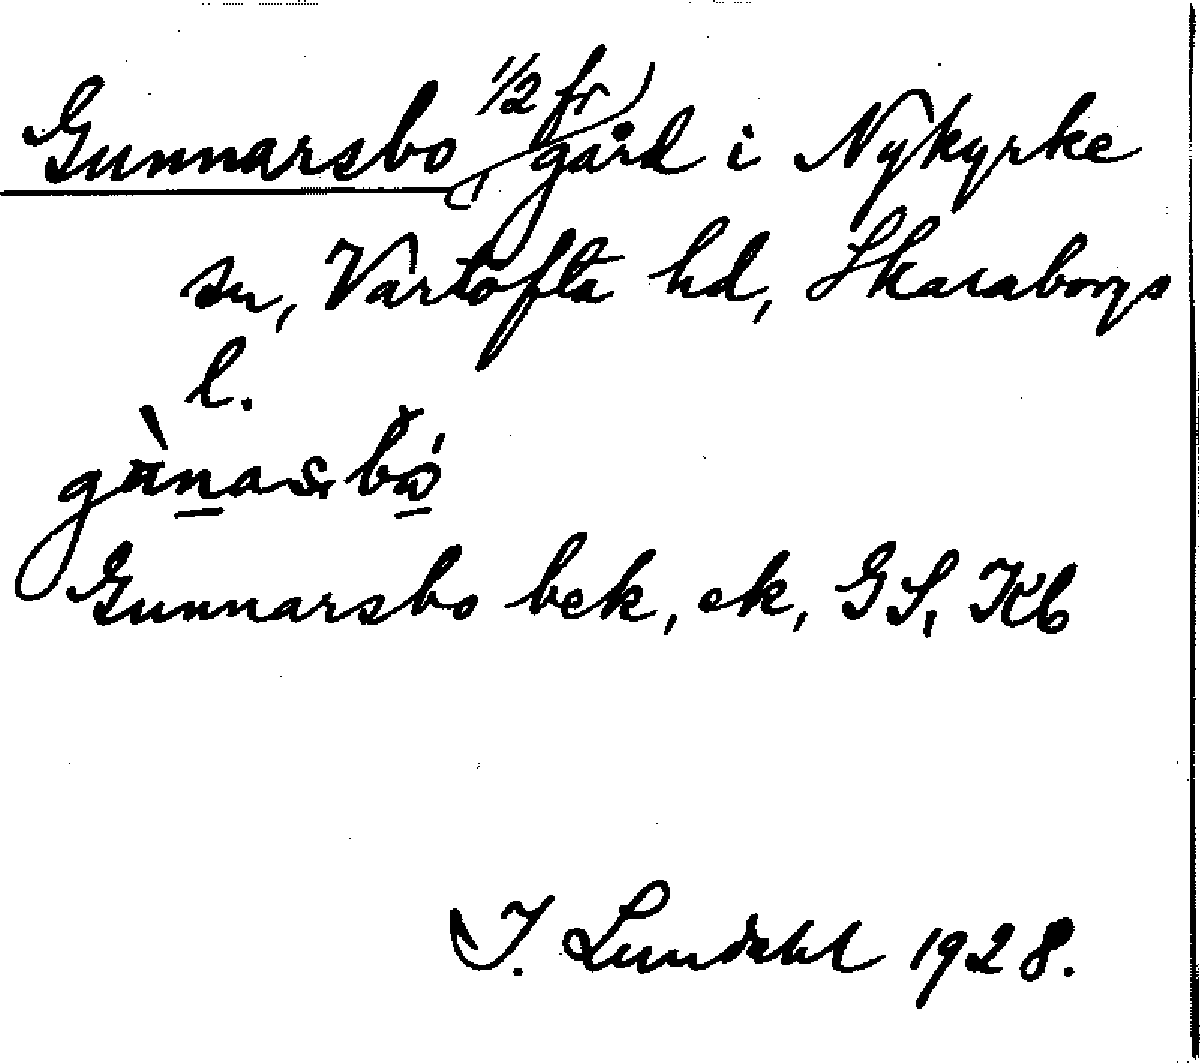 Gunnarsbo 1/2 fr gård i Nykyrke
sn, Vartofta hd, Skaraborgs
l.
Gunnarsbo bek, ek, GS, Kb
I. Lundahl 1928.